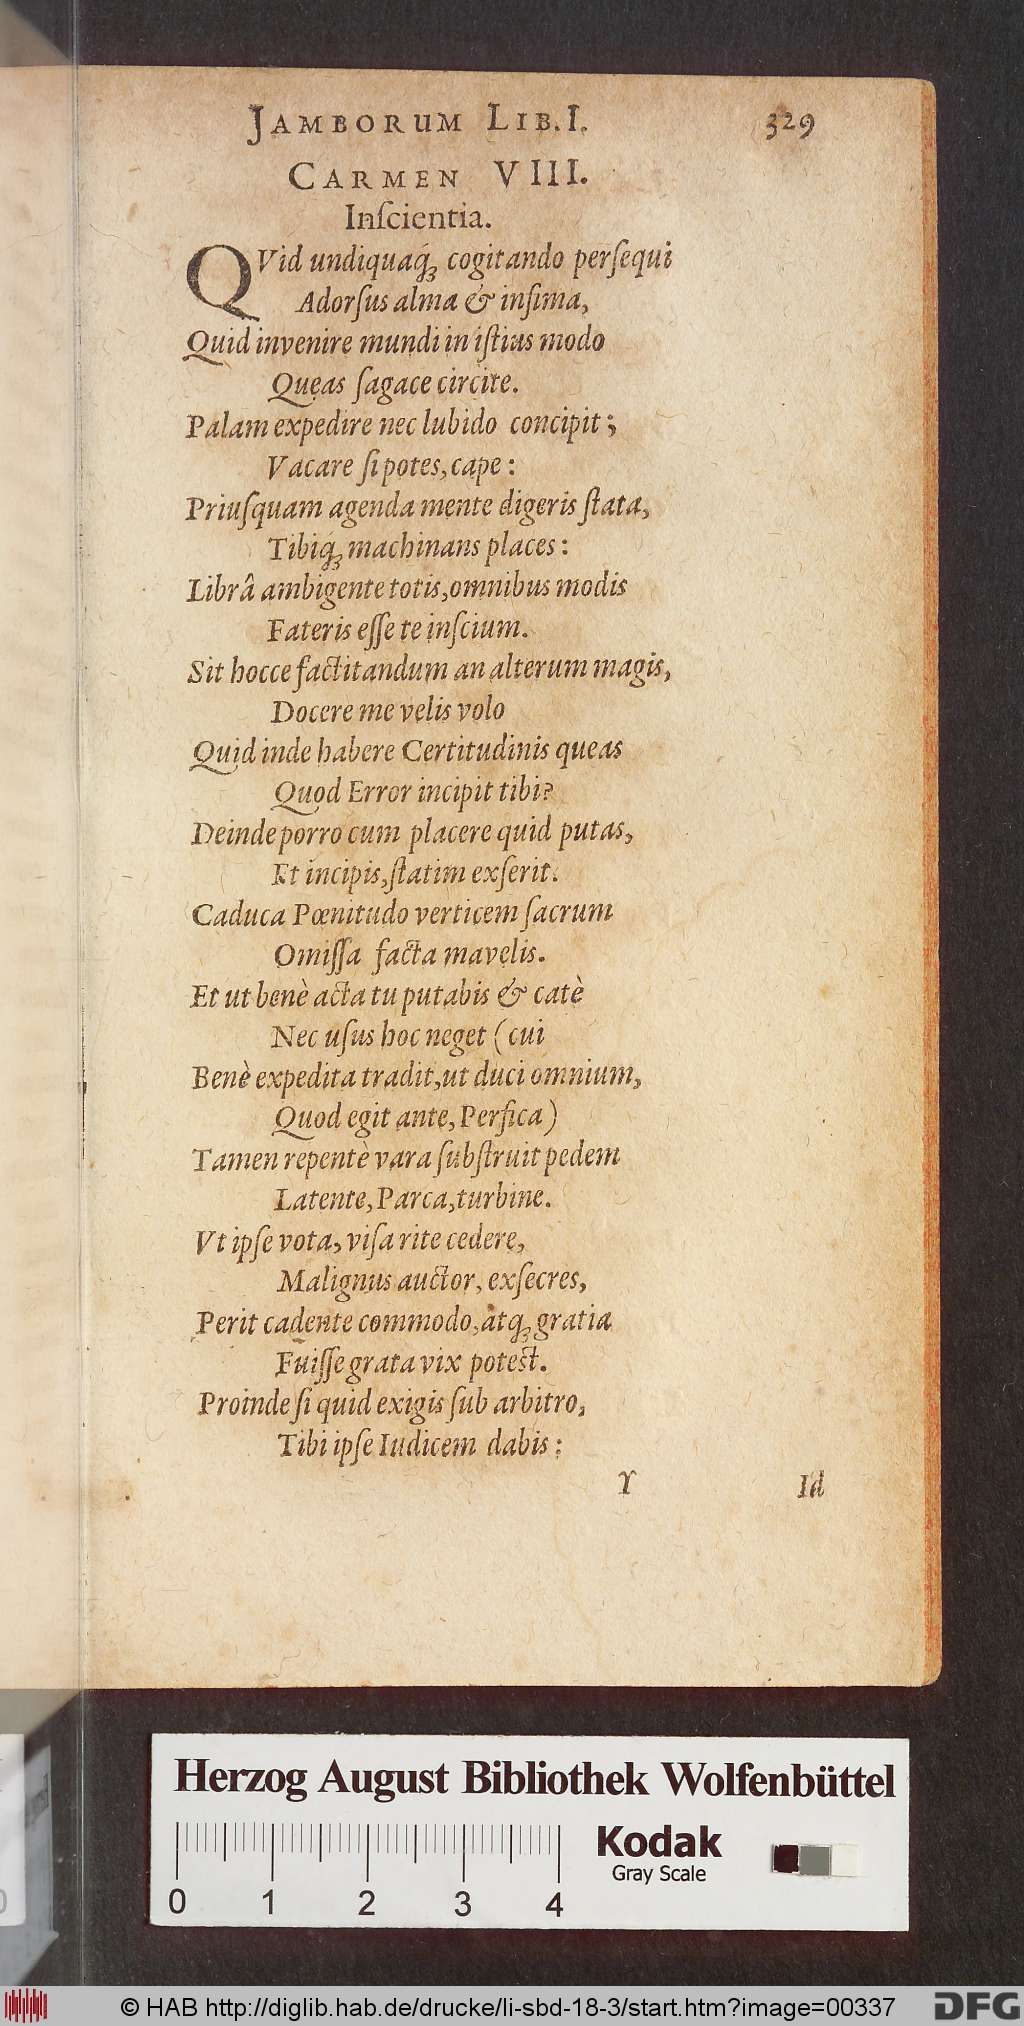 JAMBORUM LIB. I. 329
CARMEN VIII.
Inſcientia.
QVid undiquaq́ꝫ cogitando perſequi
Adorſus alma & inſima,
Quid invenire mundi in iſtius modo
Queas ſagace circite.
Palam expedire nec lubido concipit;
Vacare ſi potes, cape:
Priuſquam agenda mente digeris ſtata,
Tibiq́ꝫ machinans places:
Librâ ambigente totis, omnibus modis
Fateris eſſe te inſcium.
Sit hocce factitandum an alterum magis,
Docere me velis volo
Quid inde habere Certitudinis queas
Quod Error incipit tibi?
Deinde porro cum placere quid putas,
Et incipis, ſtatim exſerit.
Caduca Pœnitudo verticem ſacrum
Omiſſa facta mavelis.
Et ut benè acta tu putabis & catè
Nec uſus hoc neget (cui
Benè expedita tradit, ut duci omnium,
Quod egit ante, Perfica)
Tamen repentè vara ſubſtruit pedem
Latente, Parca, turbine.
Vt ipſe vota, viſa rite cedere,
Malignus auctor, exſecres,
Perit cadente commodo, atqꝫ gratia
Fuiſſe grata vix potest.
Proinde ſi quid exigis ſub arbitro,
Tibi ipſe Iudicem dabis:
Y Id
Herzog August Bibliothek Wolfenbüttel
Kodak
Gray Scale
0 1 2 3 4
© HAB http://diglib.hab.de/drucke/li-sbd-18-3/start.htm?image=00337
DFG